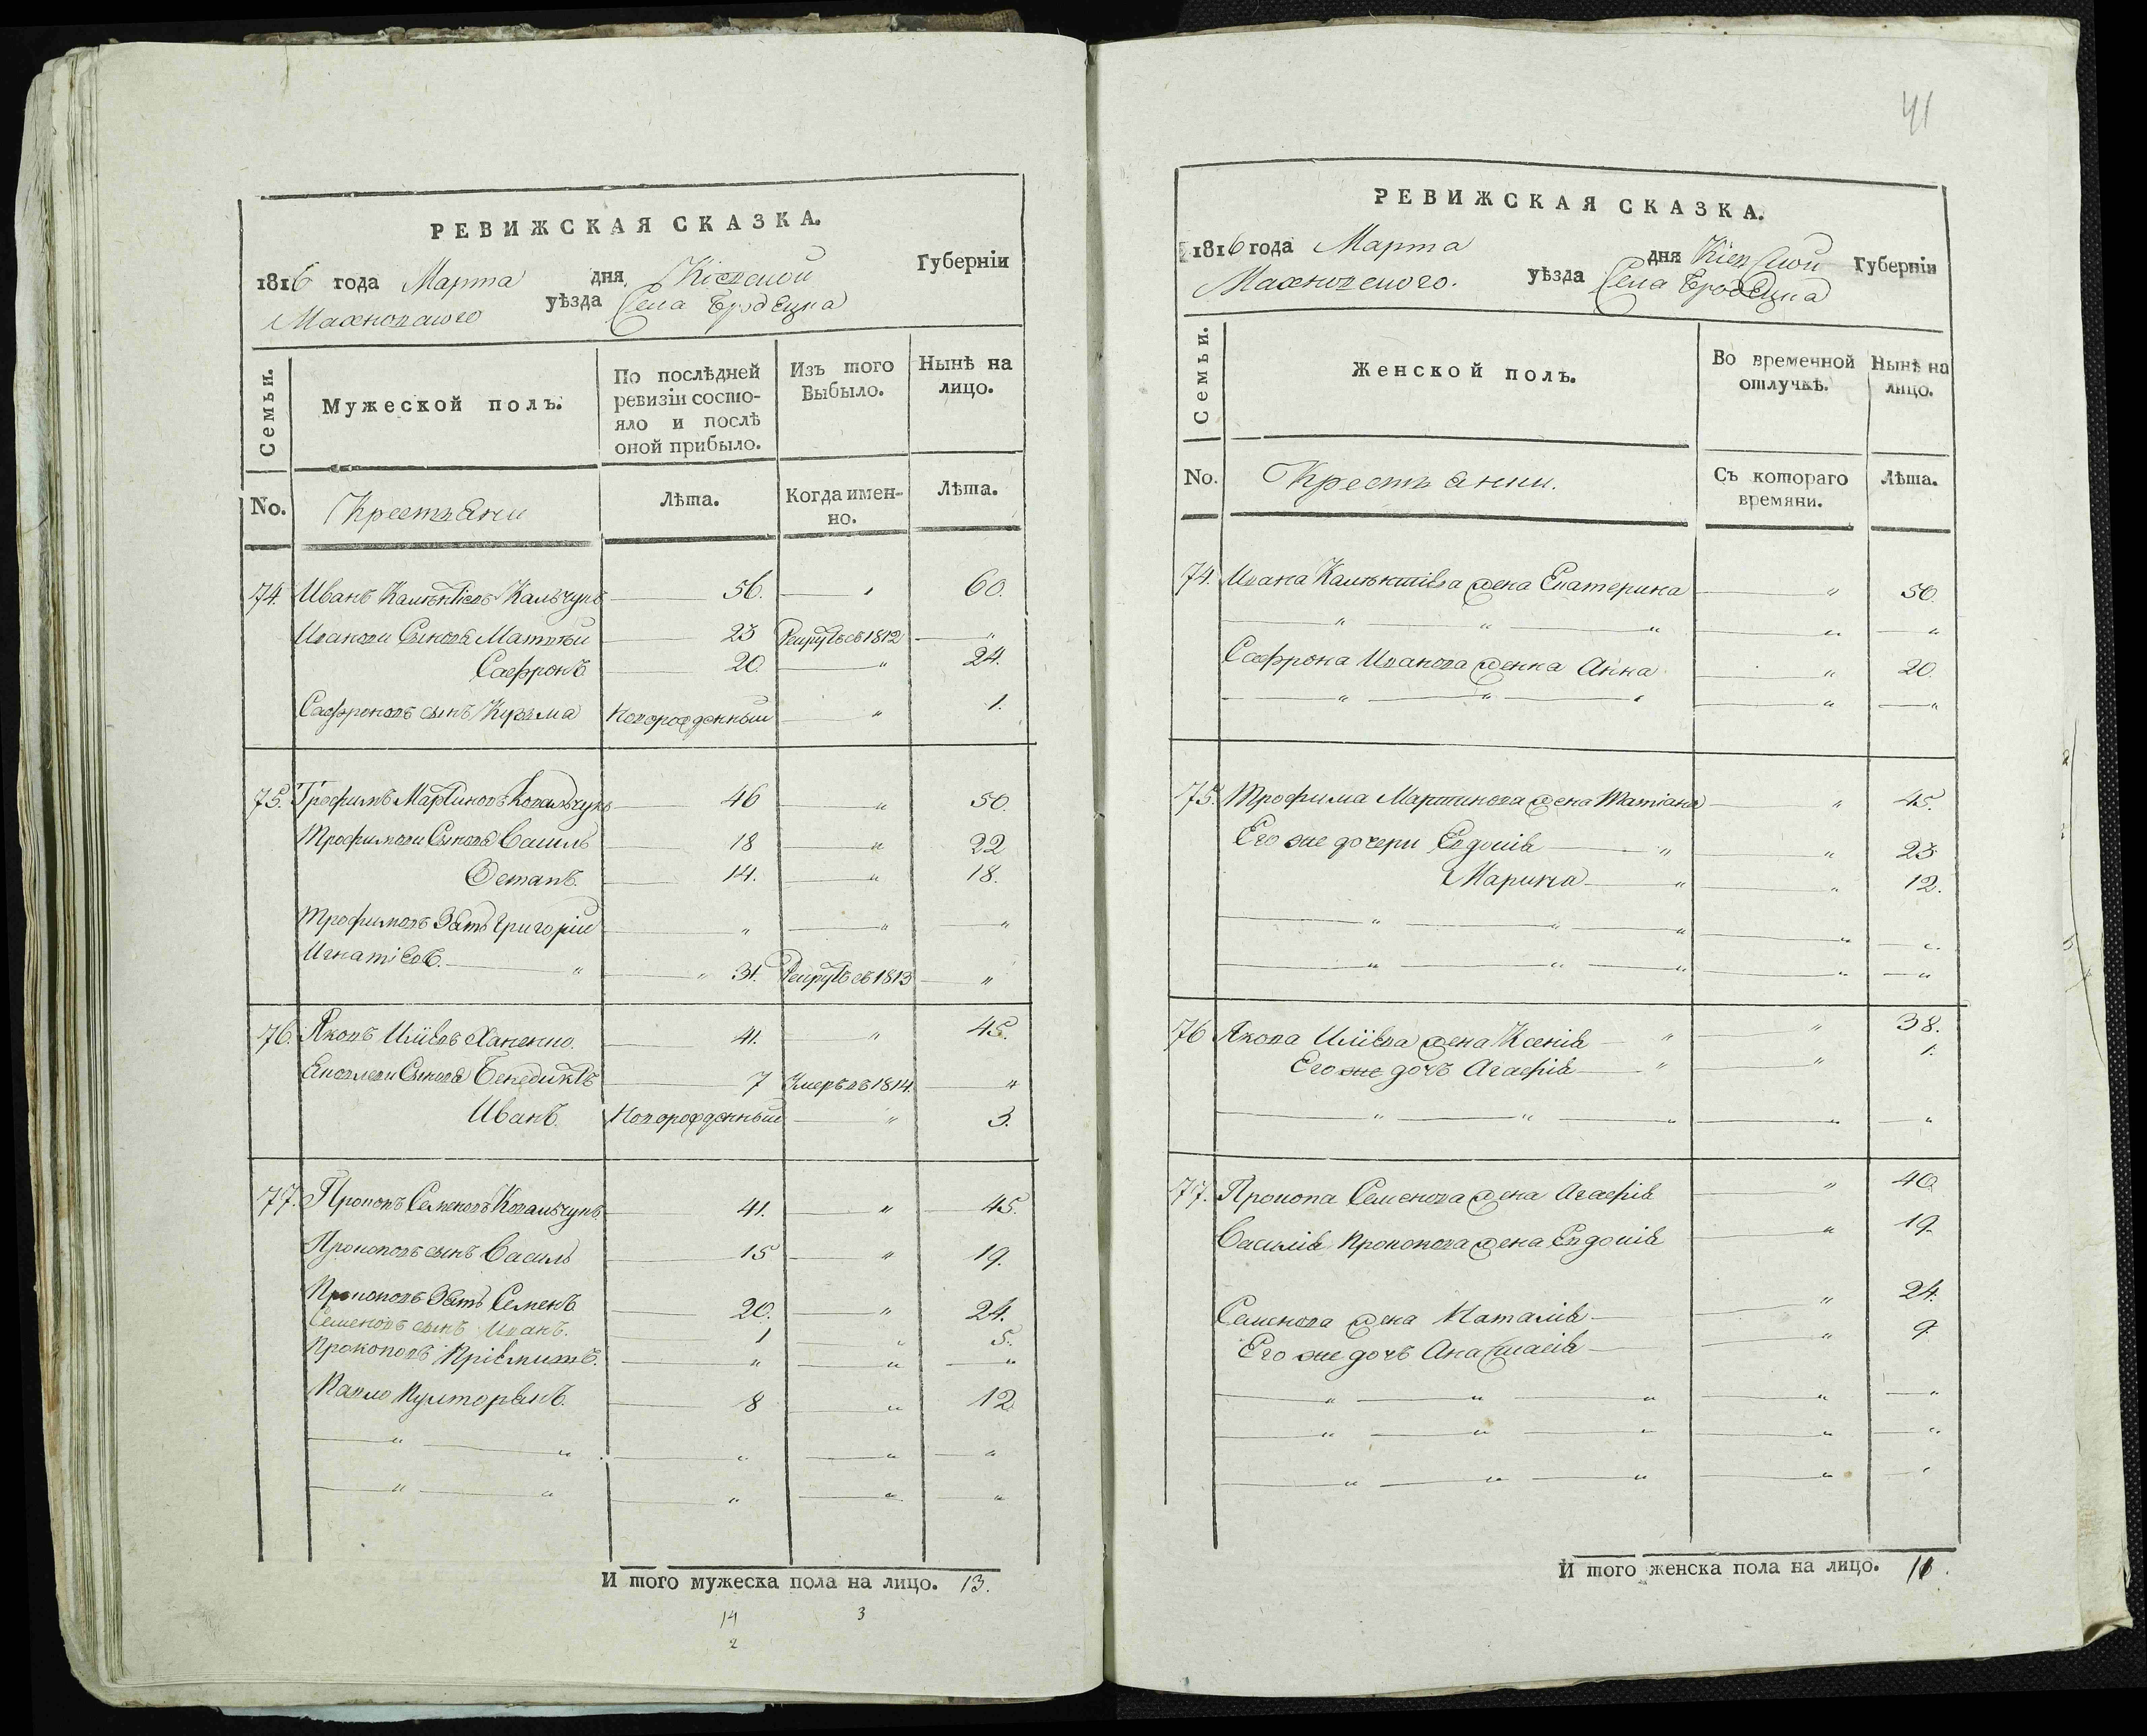 РЕВИЖСКАЯ СКАЗКА.
1816 года Марта дня Кіевской Губерніи
Махновского уѣзда Села Бродецка
Семьи.
Мужеской полъ.
По послѣдней ревизіи состо-
яло и послѣ
оной прибыло.
Изъ того Выбыло.
Нынѣ на лицо.
No.
Крестьяни
Лѣта.
Когда имен-
но.
Лѣта.
74. Иванъ Калѣнтіевъ Кальчукъ 56. " 60.
Иванови Сынови Матвѣи 23 Рекрутъ въ 1812 "
Сафронъ 20. " 24.
Сафроновъ сынъ Кузьма Новорожденный " 1.
75. Трофимъ Мартиновъ Ковальчукъ 46 " 50.
Трофимови Сынови Василь 18 " 22
Остапъ. 14. " 18.
Трофимовъ Зять Григорій " " "
Игнатіевъ. " " 31. Рекрутъ въ 1813 "
76. Яковъ Иліевъ Ханенко. 41. " 45.
Яковлеви Сынови Бенедиктъ 7 Умеръ въ 1814. "
Иванъ. Новорожденный " 3.
77. Прокопъ Семеновъ Ковальчукъ 41. " 45.
Прокоповъ сынъ Василь 15 " 19.
Прокоповъ Зять Семенъ 20. " 24.
Семеновъ сынъ Иванъ. 1 " 5.
Прокоповъ Пріемишъ. " " "
Павло 8 " 12.
" " " " "
" " " " "
И того мужеска пола на лицо. 13.
14 3
2
41
РЕВИЖСКАЯ СКАЗКА.
1816 года Марта дня Кіевской Губерніи
Махновского. уѣзда Села Бродецка
Семьи.
Женской полъ.
Во временной отлучкѣ.
Нынѣ на лицо.
No.
Крестьянки.
Съ котораго
времяни.
Лѣта.
74. Ивана Калѣнтіева жена Екатерина " 50.
" " " " "
Сафрона Иванова женка Анна " 20.
" " " " "
75. Трофима Мартинова жена Татіана " 45.
Его же дочери Евдокія " " 23
Марина " " 12.
" " " " "
" " " " "
76 Якова Иліева жена Ксенія " " 38.
Его же дочь Агафія " " 1.
" " " " "
77. Прокопа Семенова жена Агафія " 40.
Василія Прокопова жена Евдокія " 19.
Семенова жена Наталія " 24.
Его же дочь Анастасія " 9.
" " " " "
" " " " "
" " " " "
И того женска пола на лицо. 11.